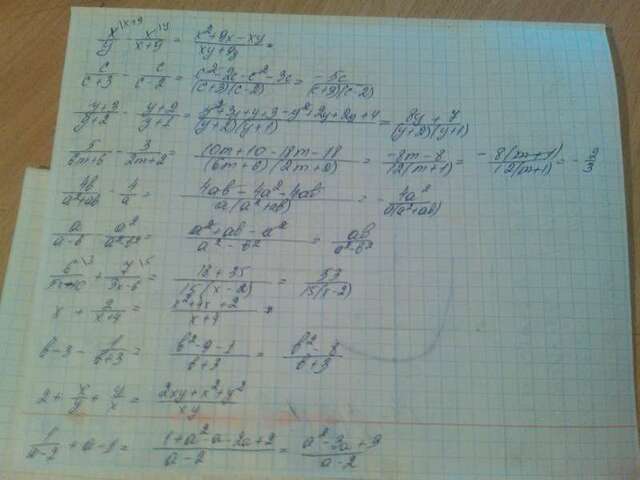 x/y - x/(x+9) = (x²+9x-xy)/(xy+9y) =
c/(c+3) - c/(c-2) = (c²-2c-c²-3c)/((c+3)(c-2)) = -5c/((c+3)(c-2))
5/(6m+6) - 3/(2m+2) = (10m+10-18m-18)/((6m+6)(2m+2)) = (-8m-8)/(12(m+1)) = -8(m+1)/(12(m+1)) = -
4b/(a²+ab) - 4/a = (4ab-4a²-4ab)/(a(a²+ab)) = -4a²/(a(a²+ab))
a/(a-b) - a²/(a²-b²) = (a²+ab-a²)/(a²-b²) = ab/(a²-b²)
6/(5x-10) + 7/(3x-6) = (18+35)/(15(x-2)) = 53/(15(x-2))
x + 2/(x+4) = (x²+4x+2)/(x+4) =
b-3 - 1/(b+3) = (b²-9-1)/(b+3) =
2 + x/y + y/x = (2xy+x²+y²)/(xy)
1/(a-2) + a-1 = (1+a²-a-2a+2)/(a-2) = (a²-3a+3)/(a-2)